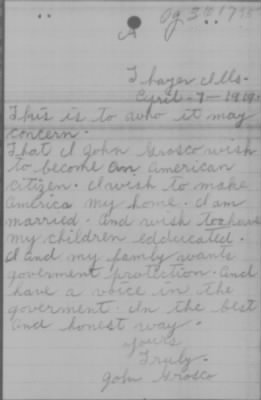 Og 3
Thayer Ills.
April-7-1919.
This is to who it may
concern.
That I John Grosco wish
to become an American
citizen. I wish to make
America my home. I am
married. And wish too have
my children edducated.
I and my family wants
goverment protection. And
have a voice in the
goverment. In the best
and honest way.
yours
Truly.
John Grosco